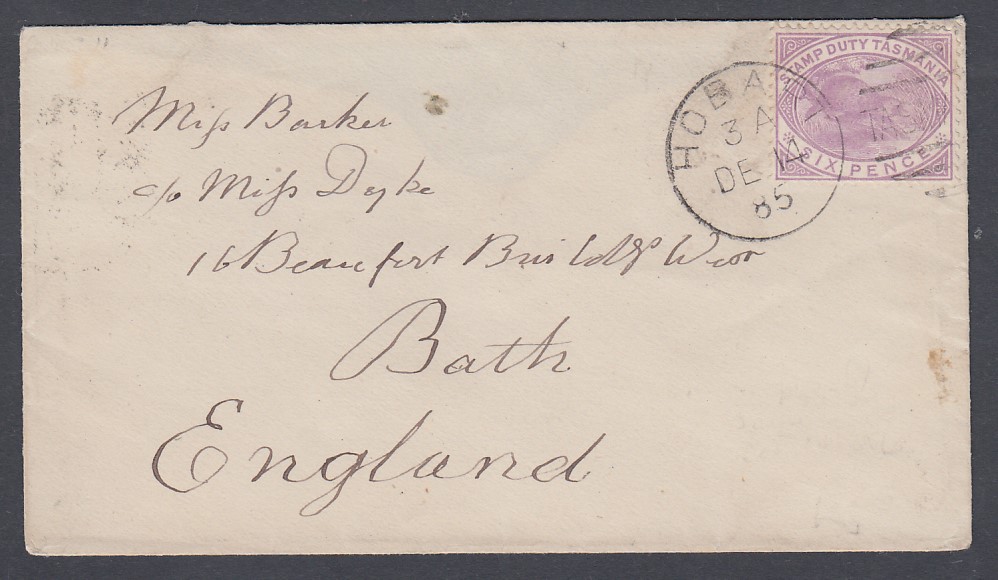 STAMP DUTY TASMANIA
SIX PENCE
HOBART
3 A
DE 14
85
TAS
Miss Barker
c/o Miss Dyke
16 Beaufort Build^gs West
Bath
England